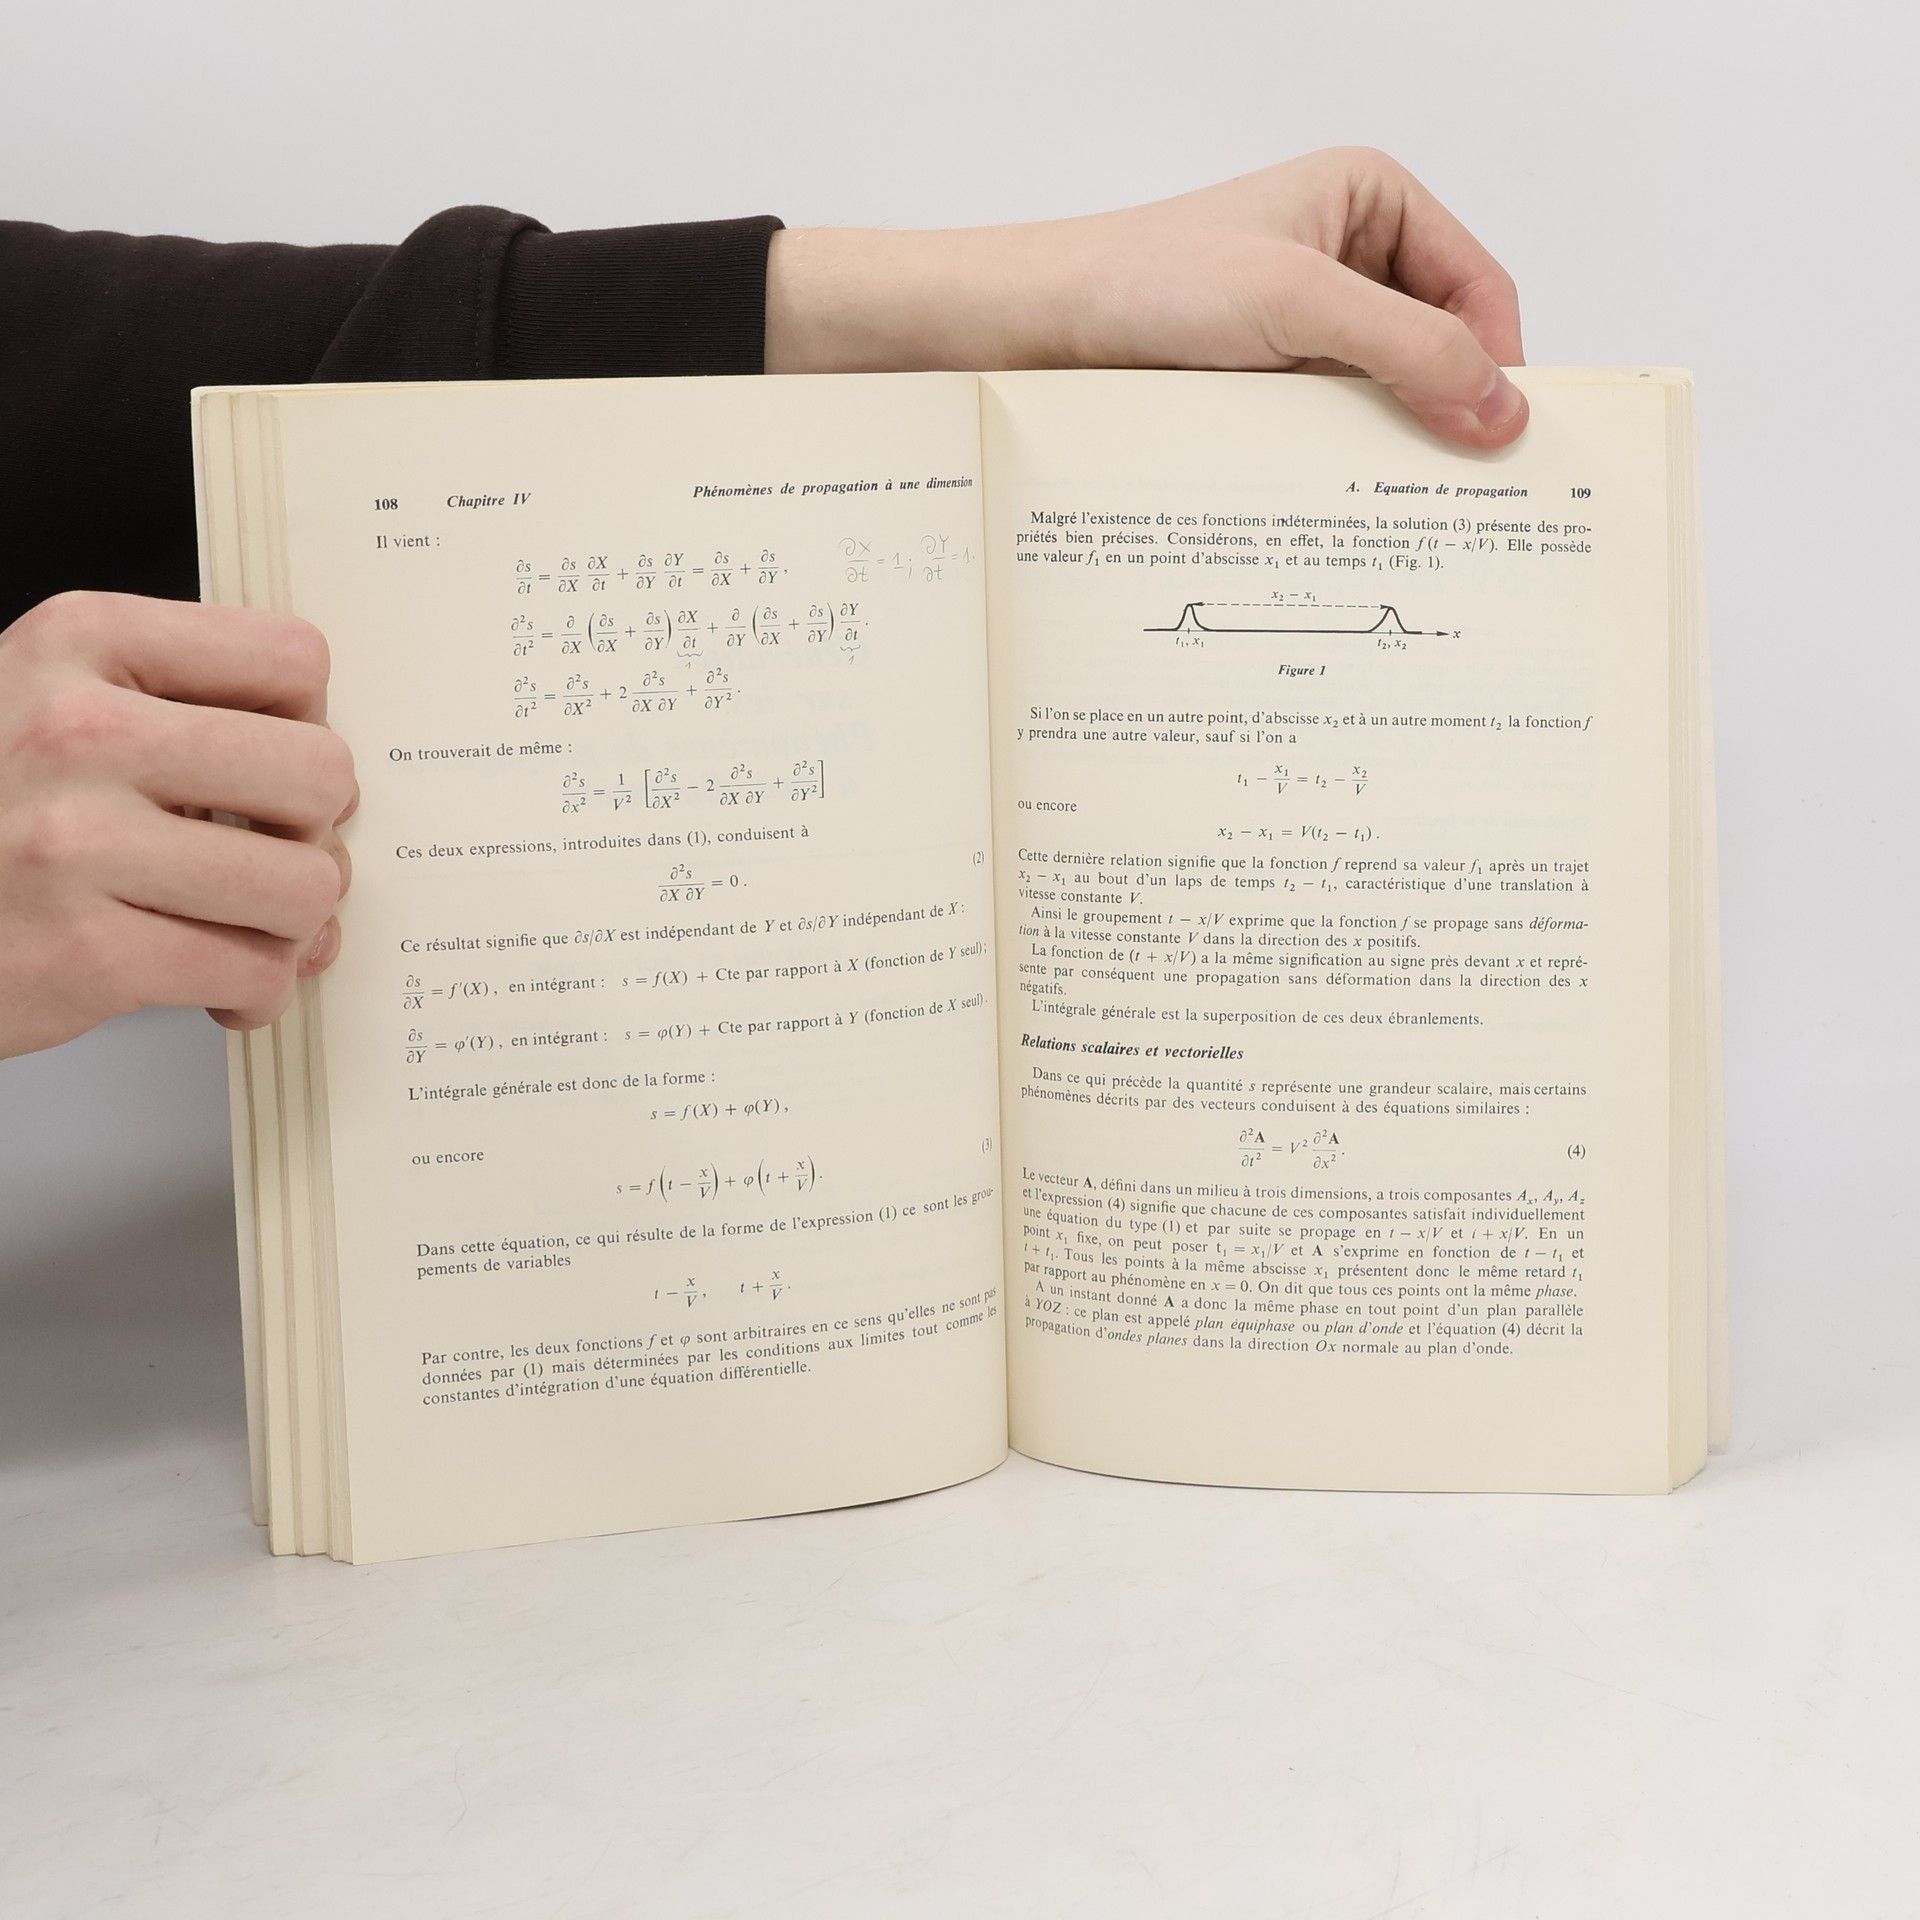 108 Chapitre IV Phénomènes de propagation à une dimension
Il vient :
∂s/∂t = ∂s/∂X ∂X/∂t + ∂s/∂Y ∂Y/∂t = ∂s/∂X + ∂s/∂Y, ∂X/∂t = 1 ; ∂Y/∂t = 1.
∂²s/∂t² = ∂/∂X (∂s/∂X + ∂s/∂Y) ∂X/∂t + ∂/∂Y (∂s/∂X + ∂s/∂Y) ∂Y/∂t.
1 1
∂²s/∂t² = ∂²s/∂X² + 2 ∂²s/∂X ∂Y + ∂²s/∂Y².
On trouverait de même :
∂²s/∂x² = 1/V² [∂²s/∂X² − 2 ∂²s/∂X ∂Y + ∂²s/∂Y²]
Ces deux expressions, introduites dans (1), conduisent à
∂²s/∂X ∂Y = 0. (2)
Ce résultat signifie que ∂s/∂X est indépendant de Y et ∂s/∂Y indépendant de X :
∂s/∂X = f′(X), en intégrant : s = f(X) + Cte par rapport à X (fonction de Y seul) ;
∂s/∂Y = φ′(Y), en intégrant : s = φ(Y) + Cte par rapport à Y (fonction de X seul).
L'intégrale générale est donc de la forme :
s = f(X) + φ(Y),
ou encore
s = f(t − x/V) + φ(t + x/V). (3)
Dans cette équation, ce qui résulte de la forme de l'expression (1) ce sont les grou-
pements de variables
t − x/V, t + x/V.
Par contre, les deux fonctions f et φ sont arbitraires en ce sens qu'elles ne sont pas
données par (1) mais déterminées par les conditions aux limites tout comme les
constantes d'intégration d'une équation différentielle.
A. Equation de propagation 109
Malgré l'existence de ces fonctions indéterminées, la solution (3) présente des pro-
priétés bien précises. Considérons, en effet, la fonction f(t − x/V). Elle possède
une valeur f₁ en un point d'abscisse x₁ et au temps t₁ (Fig. 1).
x₂ − x₁
x
t₁, x₁ t₂, x₂
Figure 1
Si l'on se place en un autre point, d'abscisse x₂ et à un autre moment t₂ la fonction f
y prendra une autre valeur, sauf si l'on a
t₁ − x₁/V = t₂ − x₂/V
ou encore
x₂ − x₁ = V(t₂ − t₁).
Cette dernière relation signifie que la fonction f reprend sa valeur f₁ après un trajet
x₂ − x₁ au bout d'un laps de temps t₂ − t₁, caractéristique d'une translation à
vitesse constante V.
Ainsi le groupement t − x/V exprime que la fonction f se propage sans déforma-
tion à la vitesse constante V dans la direction des x positifs.
La fonction de (t + x/V) a la même signification au signe près devant x et repré-
sente par conséquent une propagation sans déformation dans la direction des x
négatifs.
L'intégrale générale est la superposition de ces deux ébranlements.
Relations scalaires et vectorielles
Dans ce qui précède la quantité s représente une grandeur scalaire, mais certains
phénomènes décrits par des vecteurs conduisent à des équations similaires :
∂²A/∂t² = V² ∂²A/∂x². (4)
Le vecteur A, défini dans un milieu à trois dimensions, a trois composantes Aₓ, A_y, A_z
et l'expression (4) signifie que chacune de ces composantes satisfait individuellement
une équation du type (1) et par suite se propage en t − x/V et t + x/V. En un
point x₁ fixe, on peut poser t₁ = x₁/V et A s'exprime en fonction de t − t₁ et
t + t₁. Tous les points à la même abscisse x₁ présentent donc le même retard t₁
par rapport au phénomène en x = 0. On dit que tous ces points ont la même phase.
A un instant donné A a donc la même phase en tout point d'un plan parallèle
à YOZ : ce plan est appelé plan équiphase ou plan d'onde et l'équation (4) décrit la
propagation d'ondes planes dans la direction Ox normale au plan d'onde.